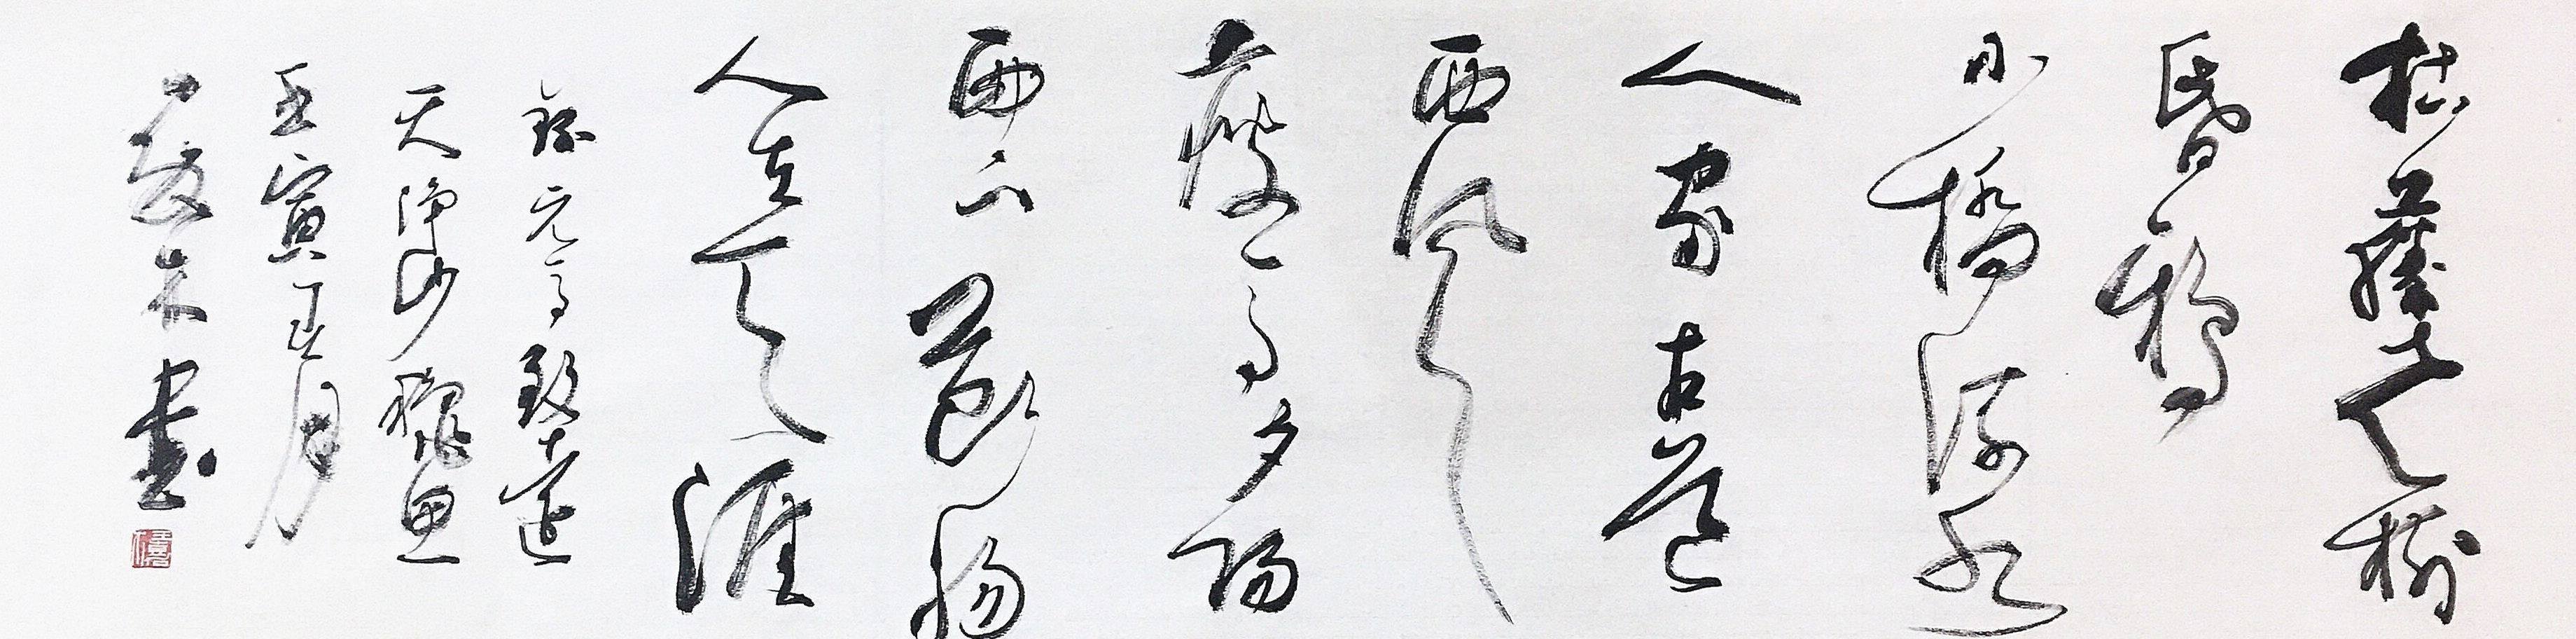 枯藤老樹
昏鴉
小橋流水
人家古道
西風
瘦馬夕陽
西下斷腸
人在天涯
錄元馬致遠
天淨沙秋思
壬寅年月
朱書